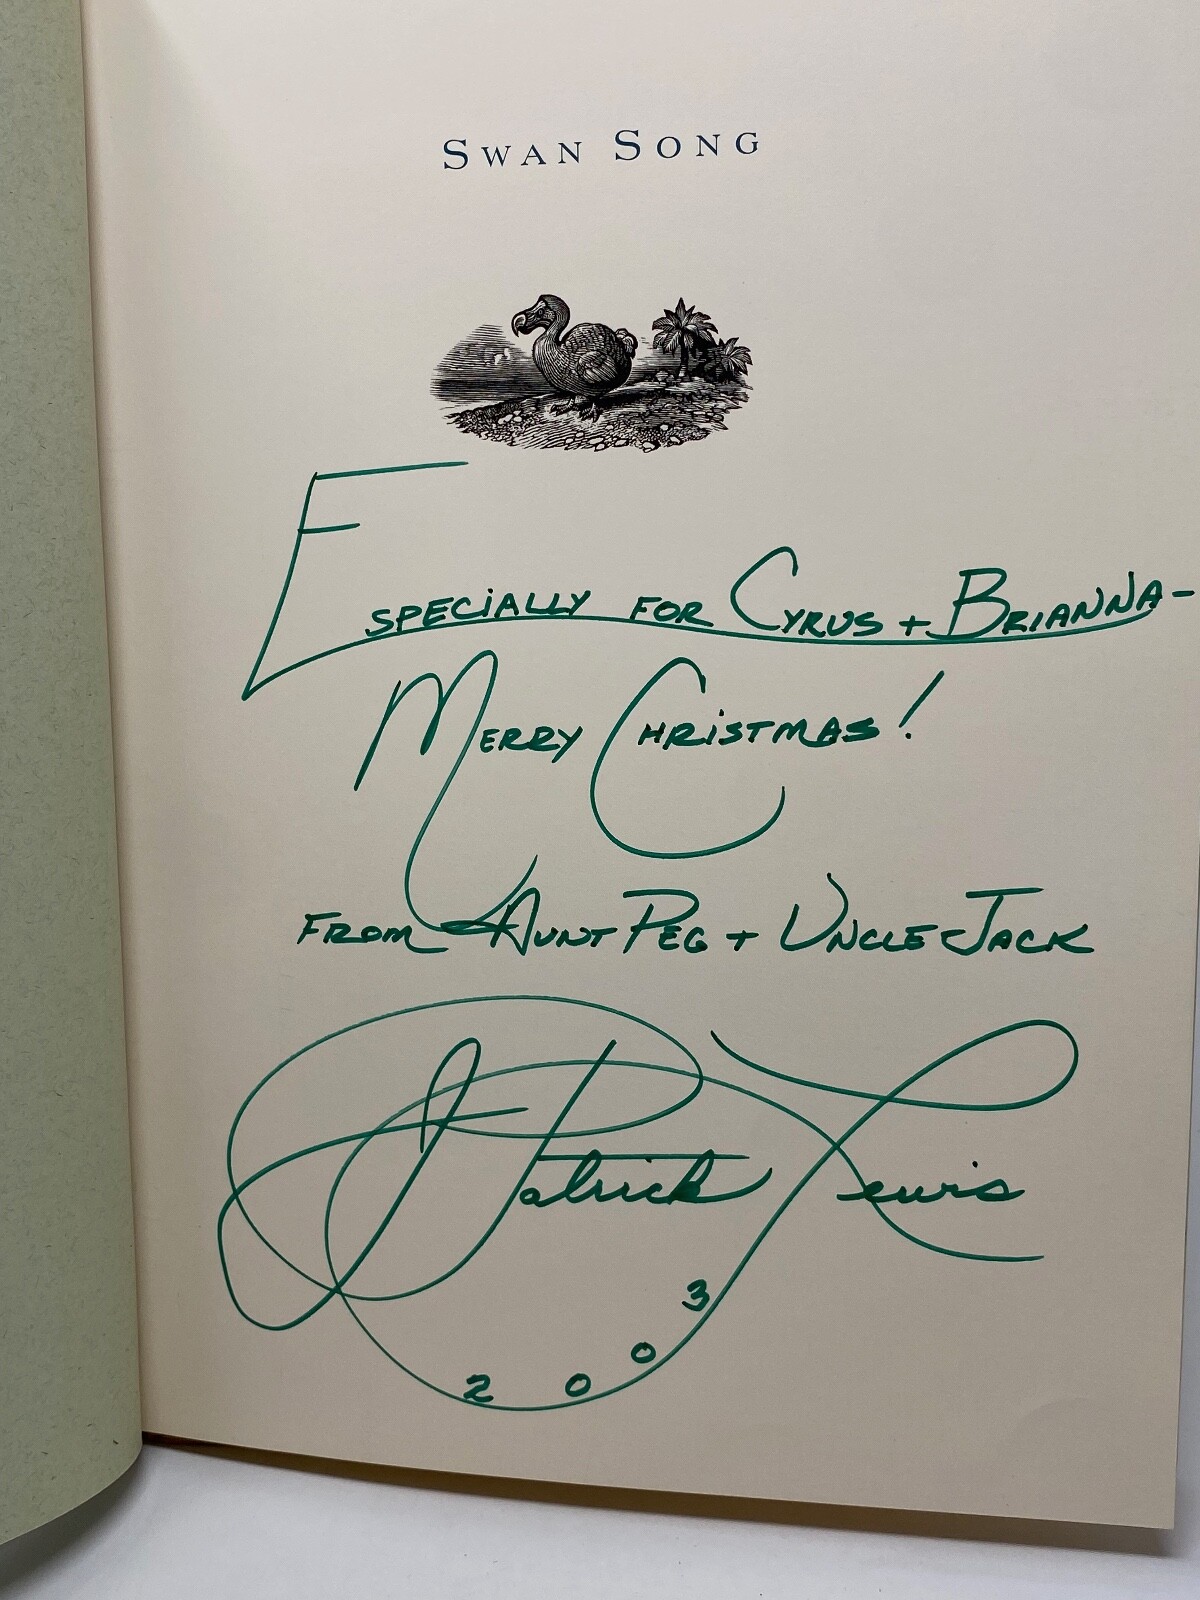 SWAN SONG
ESPECIALLY FOR CYRUS + BRIANNA-
MERRY CHRISTMAS!
FROM AUNT PEG + UNCLE JACK
J Patrick Lewis
2003